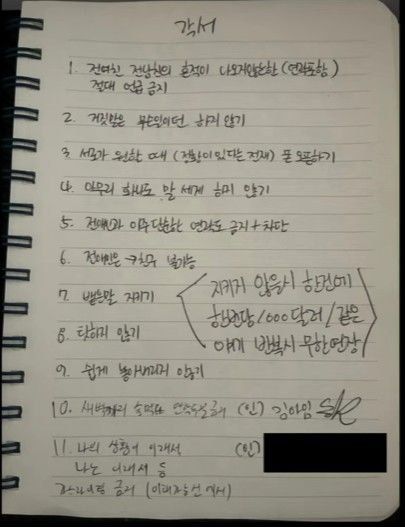 각서
1. 전여친 전남친의 흔적이 나오지않는한 (연락포함)
절대 언급 금지
2. 거짓말은 무슨일이던 하지 않기
3. 서로가 원할때 (정황이 있다는 전제) 폰 오픈하기
4. 아무리 화나도 말 세게 하지 않기
5. 전애인과 아주 단순한 연락도 금지 + 차단
6. 전애인은 친구 불가능
7. 뱉은말 지키기
8. 탓하지 않기
9. 쉽게 놓아버리지 않기
지키지 않을시 한건에
한번당 1000달러 / 같은
얘기 반복시 무한연장
10. 새벽까지 금지 (인) 김아임
11. 나의 상황이 이래서 (인)
나는 이래서 등
금지 (이해가능선 에서)